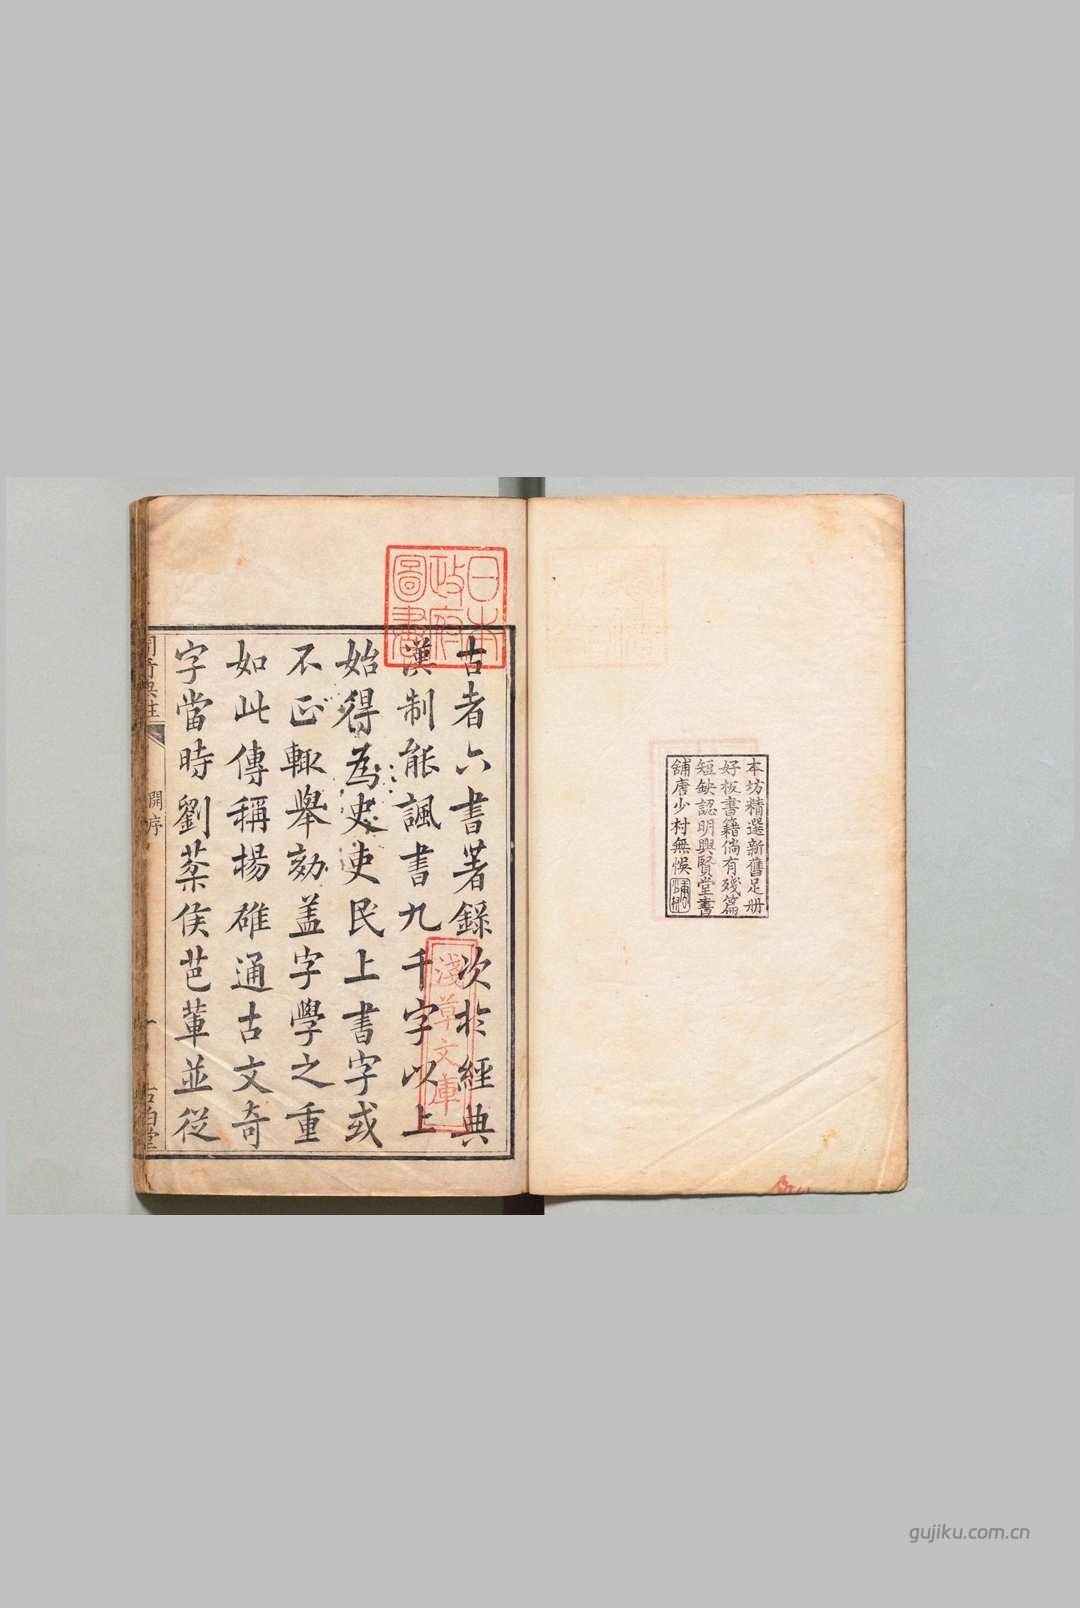 本坊精選新舊足册
好板書籍倘有殘篇
短缺認明興賢堂書
舖唐少村無悞
日本
政府
圖書
古者六書著錄次於經典
漢制能諷書九千字以上
始得為史吏民上書字或
不正輒舉劾蓋字學之重
如此傳稱楊雄通古文奇
字當時劉棻侯芭輩並從
淺草文庫
開序
一
古柏堂
gujiku.com.cn